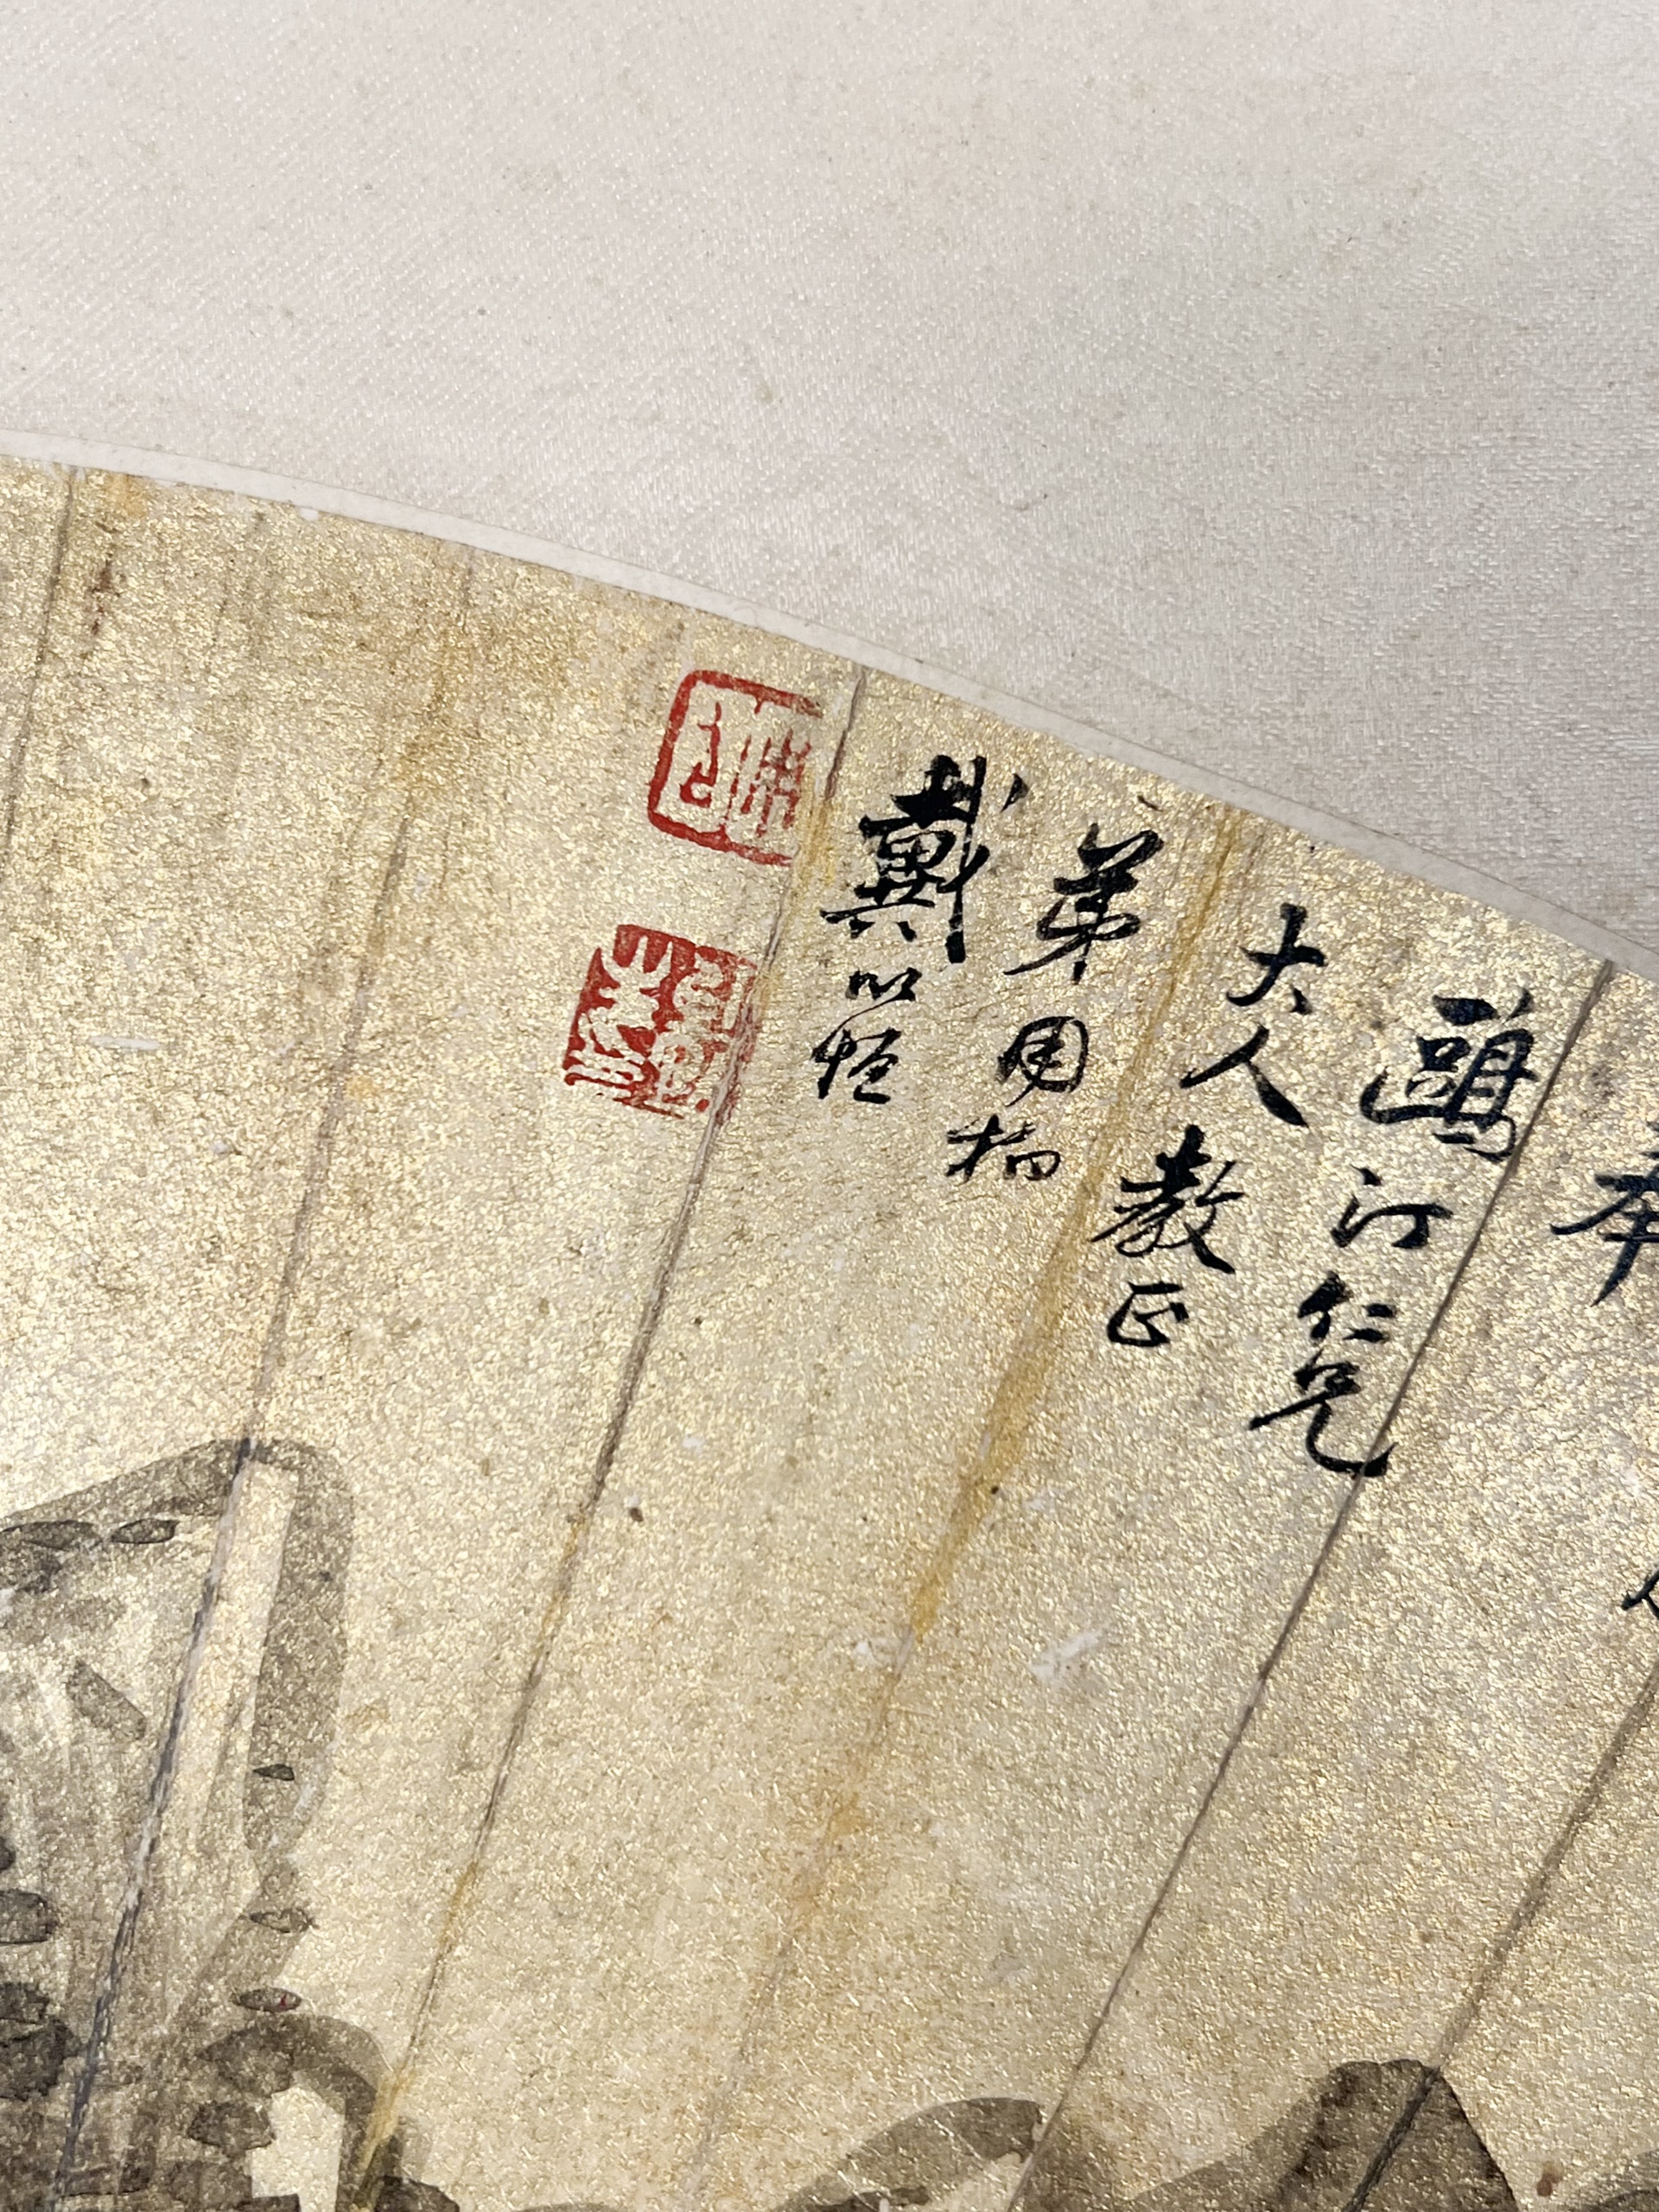 奉
鷗汀仁兄
大人教正
弟周柄
戴以恒